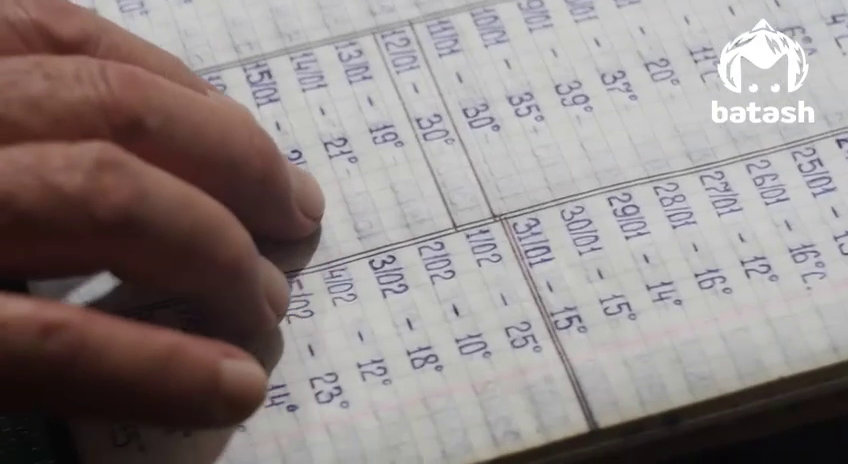 batash
4°C
6°C
- 11°C
- 20°
/01 - 37°
9/01 - 39°
10/01 - 35°
11/01 - 30°
12/01 - 30°
13/01 - 19°
14/01 - 21°
15/01 -
25/01 -
26/01 - 16°C.
27/01 - 12°
28/01 - 16°
29/01 - 14°
30/01 - 15°
31/01 - 15°
1/02 - 25°
2/02 - 10°
3/02 - 18°
4/02 - 12°
5/02 - 23°
14°